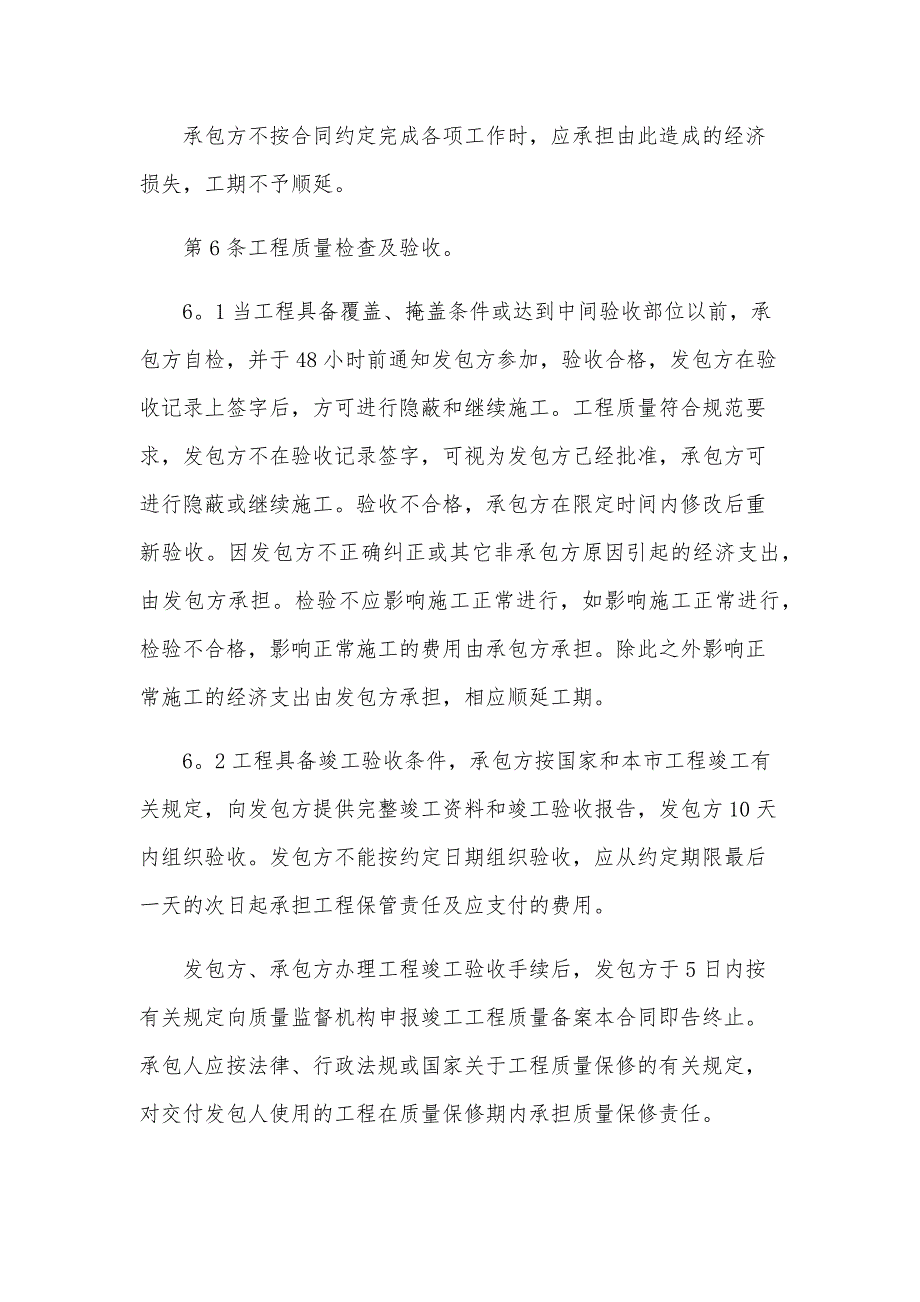 承包方不按合同约定完成各项工作时，应承担由此造成的经济
损失，工期不予顺延。
第 6 条工程质量检查及验收。
6。1 当工程具备覆盖、掩盖条件或达到中间验收部位以前，承
包方自检，并于 48 小时前通知发包方参加，验收合格，发包方在验
收记录上签字后，方可进行隐蔽和继续施工。工程质量符合规范要
求，发包方不在验收记录签字，可视为发包方己经批准，承包方可
进行隐蔽或继续施工。验收不合格，承包方在限定时间内修改后重
新验收。因发包方不正确纠正或其它非承包方原因引起的经济支出，
由发包方承担。检验不应影响施工正常进行，如影响施工正常进行，
检验不合格，影响正常施工的费用由承包方承担。除此之外影响正
常施工的经济支出由发包方承担，相应顺延工期。
6。2 工程具备竣工验收条件，承包方按国家和本市工程竣工有
关规定，向发包方提供完整竣工资料和竣工验收报告，发包方 10 天
内组织验收。发包方不能按约定日期组织验收，应从约定期限最后
一天的次日起承担工程保管责任及应支付的费用。
发包方、承包方办理工程竣工验收手续后，发包方于 5 日内按
有关规定向质量监督机构申报竣工工程质量备案本合同即告终止。
承包人应按法律、行政法规或国家关于工程质量保修的有关规定，
对交付发包人使用的工程在质量保修期内承担质量保修责任。